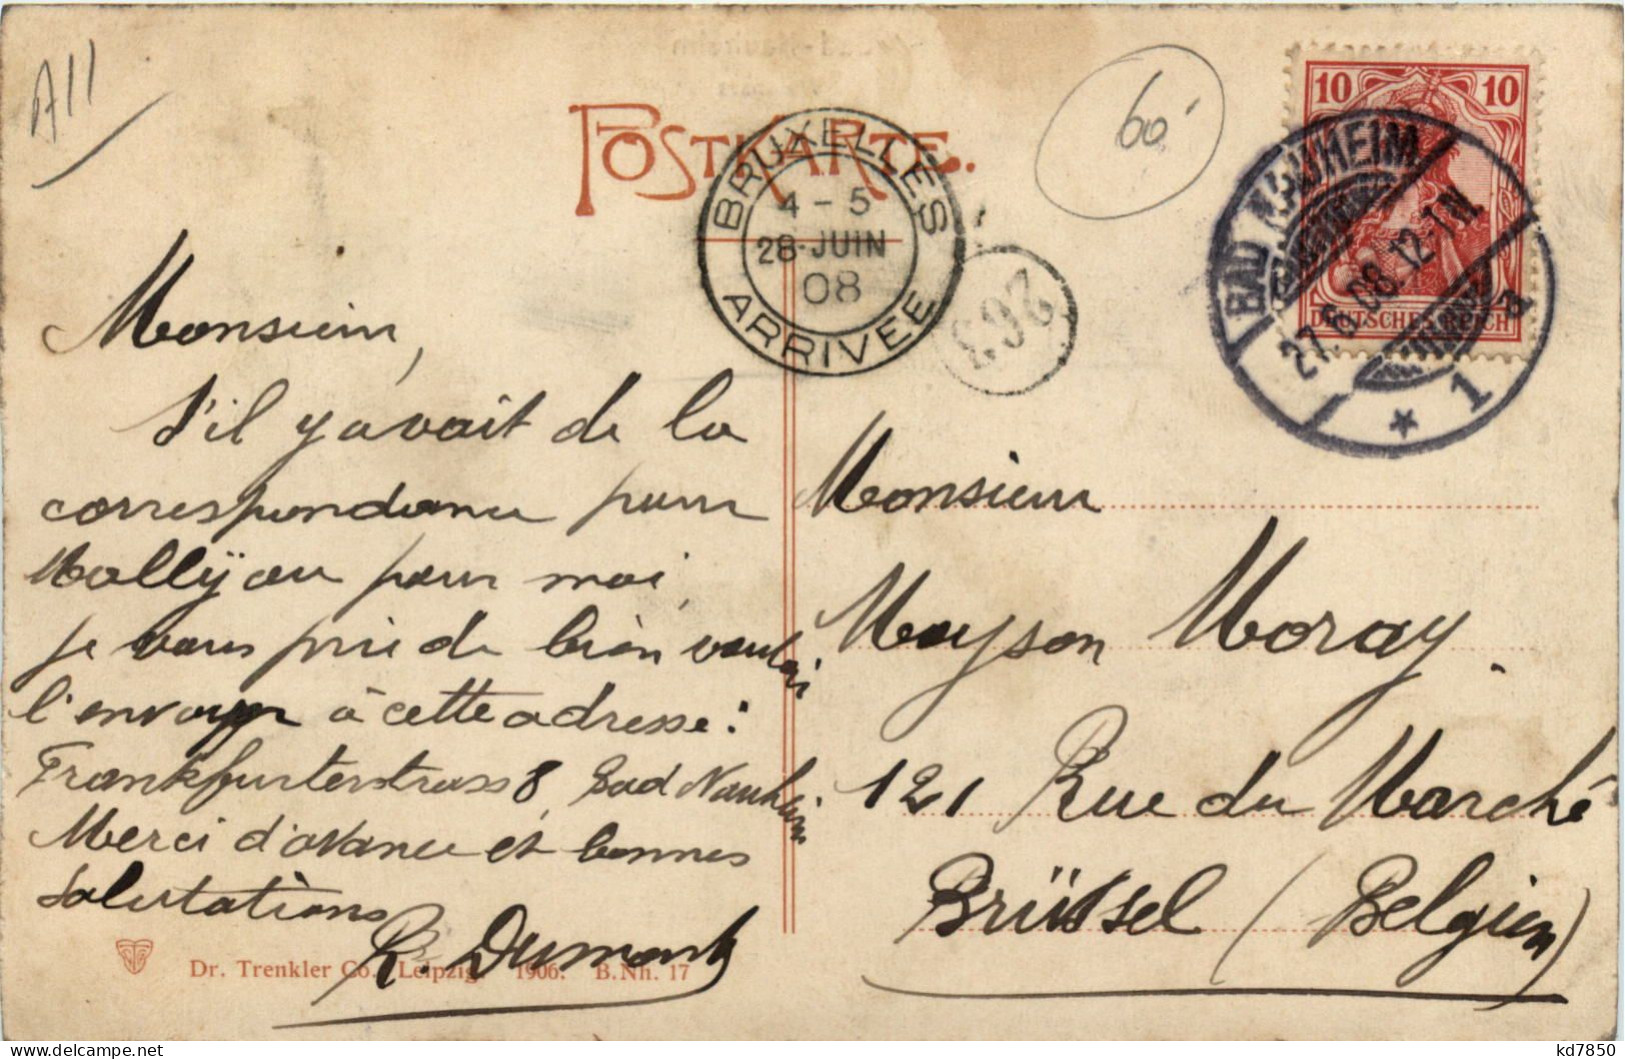 A11
60
POSTKARTE.
BRUXELLES
4 - 5
28-JUIN
08
ARRIVEE
10 10
DEUTSCHES REICH
BAD NAUHEIM
27.6.08. 12-1N.
* 1 a
Monsieur,
S'il y avait de la
correspondance pour
ou pour moi,
je vous prie de bien vouloir
l'envoyer à cette adresse:
Frankfurterstrass 8, Bad Nauheim
Merci d'avance et bonnes
salutations
R. Dumont
Monsieur
Mayson Moray.
121 Rue du Marché
Brüssel (Belgien)
Dr. Trenkler Co., Leipzig. 1906. B.Nh. 17
kd7850